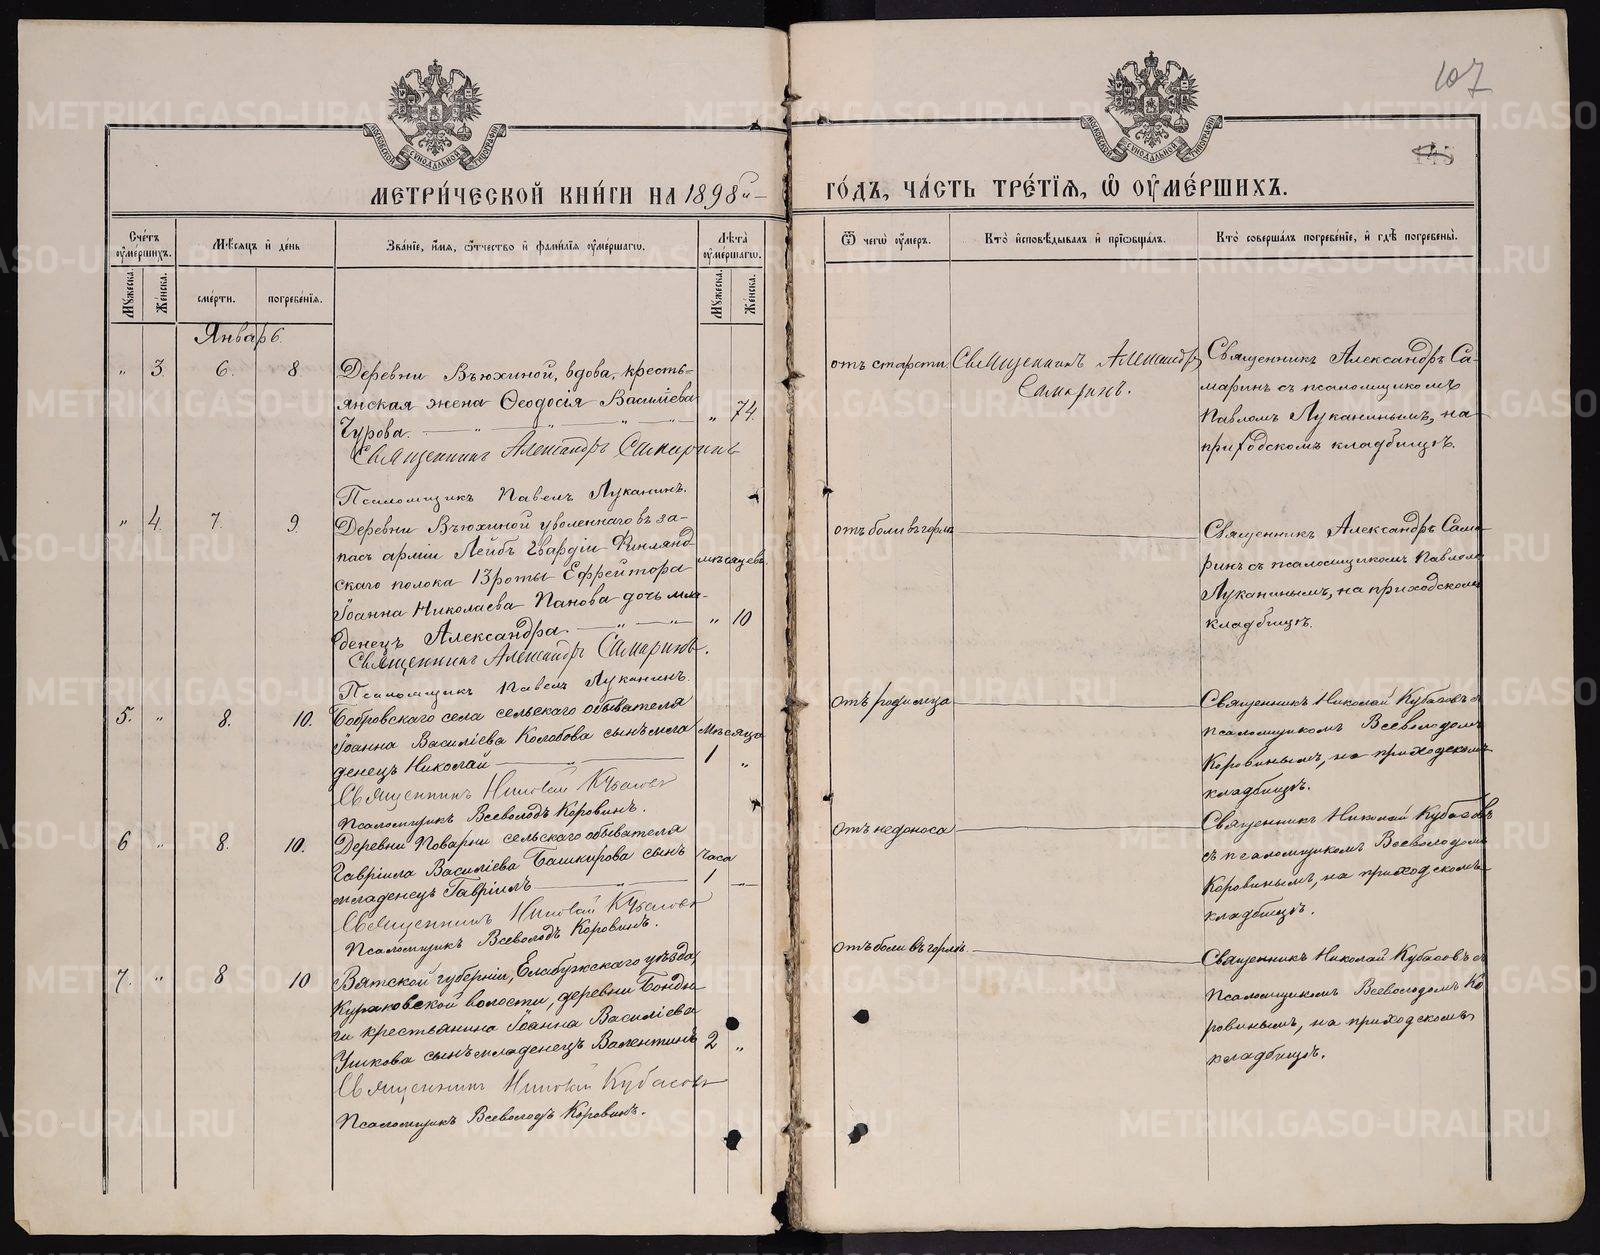 107
145
МОСКОВСКОЙ СѴНОДАЛЬНОЙ ТИПОГРАФІИ
МОСКОВСКОЙ СѴНОДАЛЬНОЙ ТИПОГРАФІИ
МЕТРИ́ЧЕСКОЙ КНИ́ГИ НА 1898й
ГО́ДЪ, ЧА́СТЬ ТРЕ́ТІѦ, Ѽ ОУ҆МЕ́РШИХЪ.
Сче́тъ оу҆ме́ршихъ.
Мѣ́сѧцъ и҆ де́нь
Зва́нїе, и҆́мѧ, ѻ҆́тчество и҆ фами́лїѧ оу҆ме́ршагѡ.
Лѣ́та оу҆ме́ршагѡ.
Ѿ чегѡ̀ оу҆́меръ.
Кто̀ и҆сповѣ́дывалъ и҆ прїѡбща́лъ.
Кто̀ соверша́лъ погребе́нїе, и҆ гдѣ̀ погребены̀.
Мꙋ́жеска. Же́нска.
сме́рти. погребе́нїѧ.
Мꙋ́жеска. Же́нска.
Январь.
„ 3. 6. 8
Деревни Вьюхиной, вдова, кресть-
янская жена Ѳеодосія Василіева
Чурова. „ 74.
Священникъ Александръ Самаринъ
Псаломщикъ Павелъ Луканинъ.
отъ старости.
Священникъ Александръ
Самаринъ.
Священникъ Александръ Са-
маринъ съ псаломщикомъ
Павломъ Луканинымъ, на
приходскомъ кладбищѣ.
„ 4. 7. 9.
Деревни Вьюхиной уволеннаго въ за-
пасъ арміи Лейбъ Гвардіи Финлянд-
скаго полока 13 роты Ефрейтора
Іоанна Николаева Панова дочь мла-
денецъ Александра.
мѣсяцевъ.
„ 10
Священникъ Александръ Самаринъ.
Псаломщикъ Павелъ Луканинъ.
отъ боли въ горлѣ
Священникъ Александръ Сама-
ринъ съ псаломщикомъ Павломъ
Луканинымъ, на приходскомъ
кладбищѣ.
5. „ 8. 10.
Бобровскаго села сельскаго обывателя
Іоанна Василіева Колобова сынъ мла
денецъ Николай
Мѣсяца
1 „
Священникъ Николай Кубасовъ
Псаломщикъ Всеволодъ Коровинъ.
отъ родимца
Священникъ Николай Кубасовъ съ
псаломщикомъ Всеволодомъ
Коровинымъ, на приходскомъ
кладбищѣ.
6 „ 8. 10.
Деревни Поварни сельскаго обывателя
Гавріила Василіева Башкирова сынъ
младенецъ Гавріилъ
Часа
1 —
Священникъ Николай Кубасовъ
Псаломщикъ Всеволодъ Коровинъ.
отъ недоноса
Священникъ Николай Кубасовъ
съ псаломщикомъ Всеволодомъ
Коровинымъ, на приходскомъ
кладбищѣ.
7. „ 8 10
Вятской губерніи, Елабужскаго уѣзда,
Кураковской волости, деревни Бонды
ги крестьянина Іоанна Василіева
Ушкова сынъ младенецъ Валентинъ
2 „
Священникъ Николай Кубасовъ
Псаломщикъ Всеволодъ Коровинъ.
отъ боли въ горлѣ.
Священникъ Николай Кубасовъ съ
псаломщикомъ Всеволодомъ Ко
ровинымъ, на приходскомъ
кладбищѣ.
METRIKI.GASO-URAL.RU